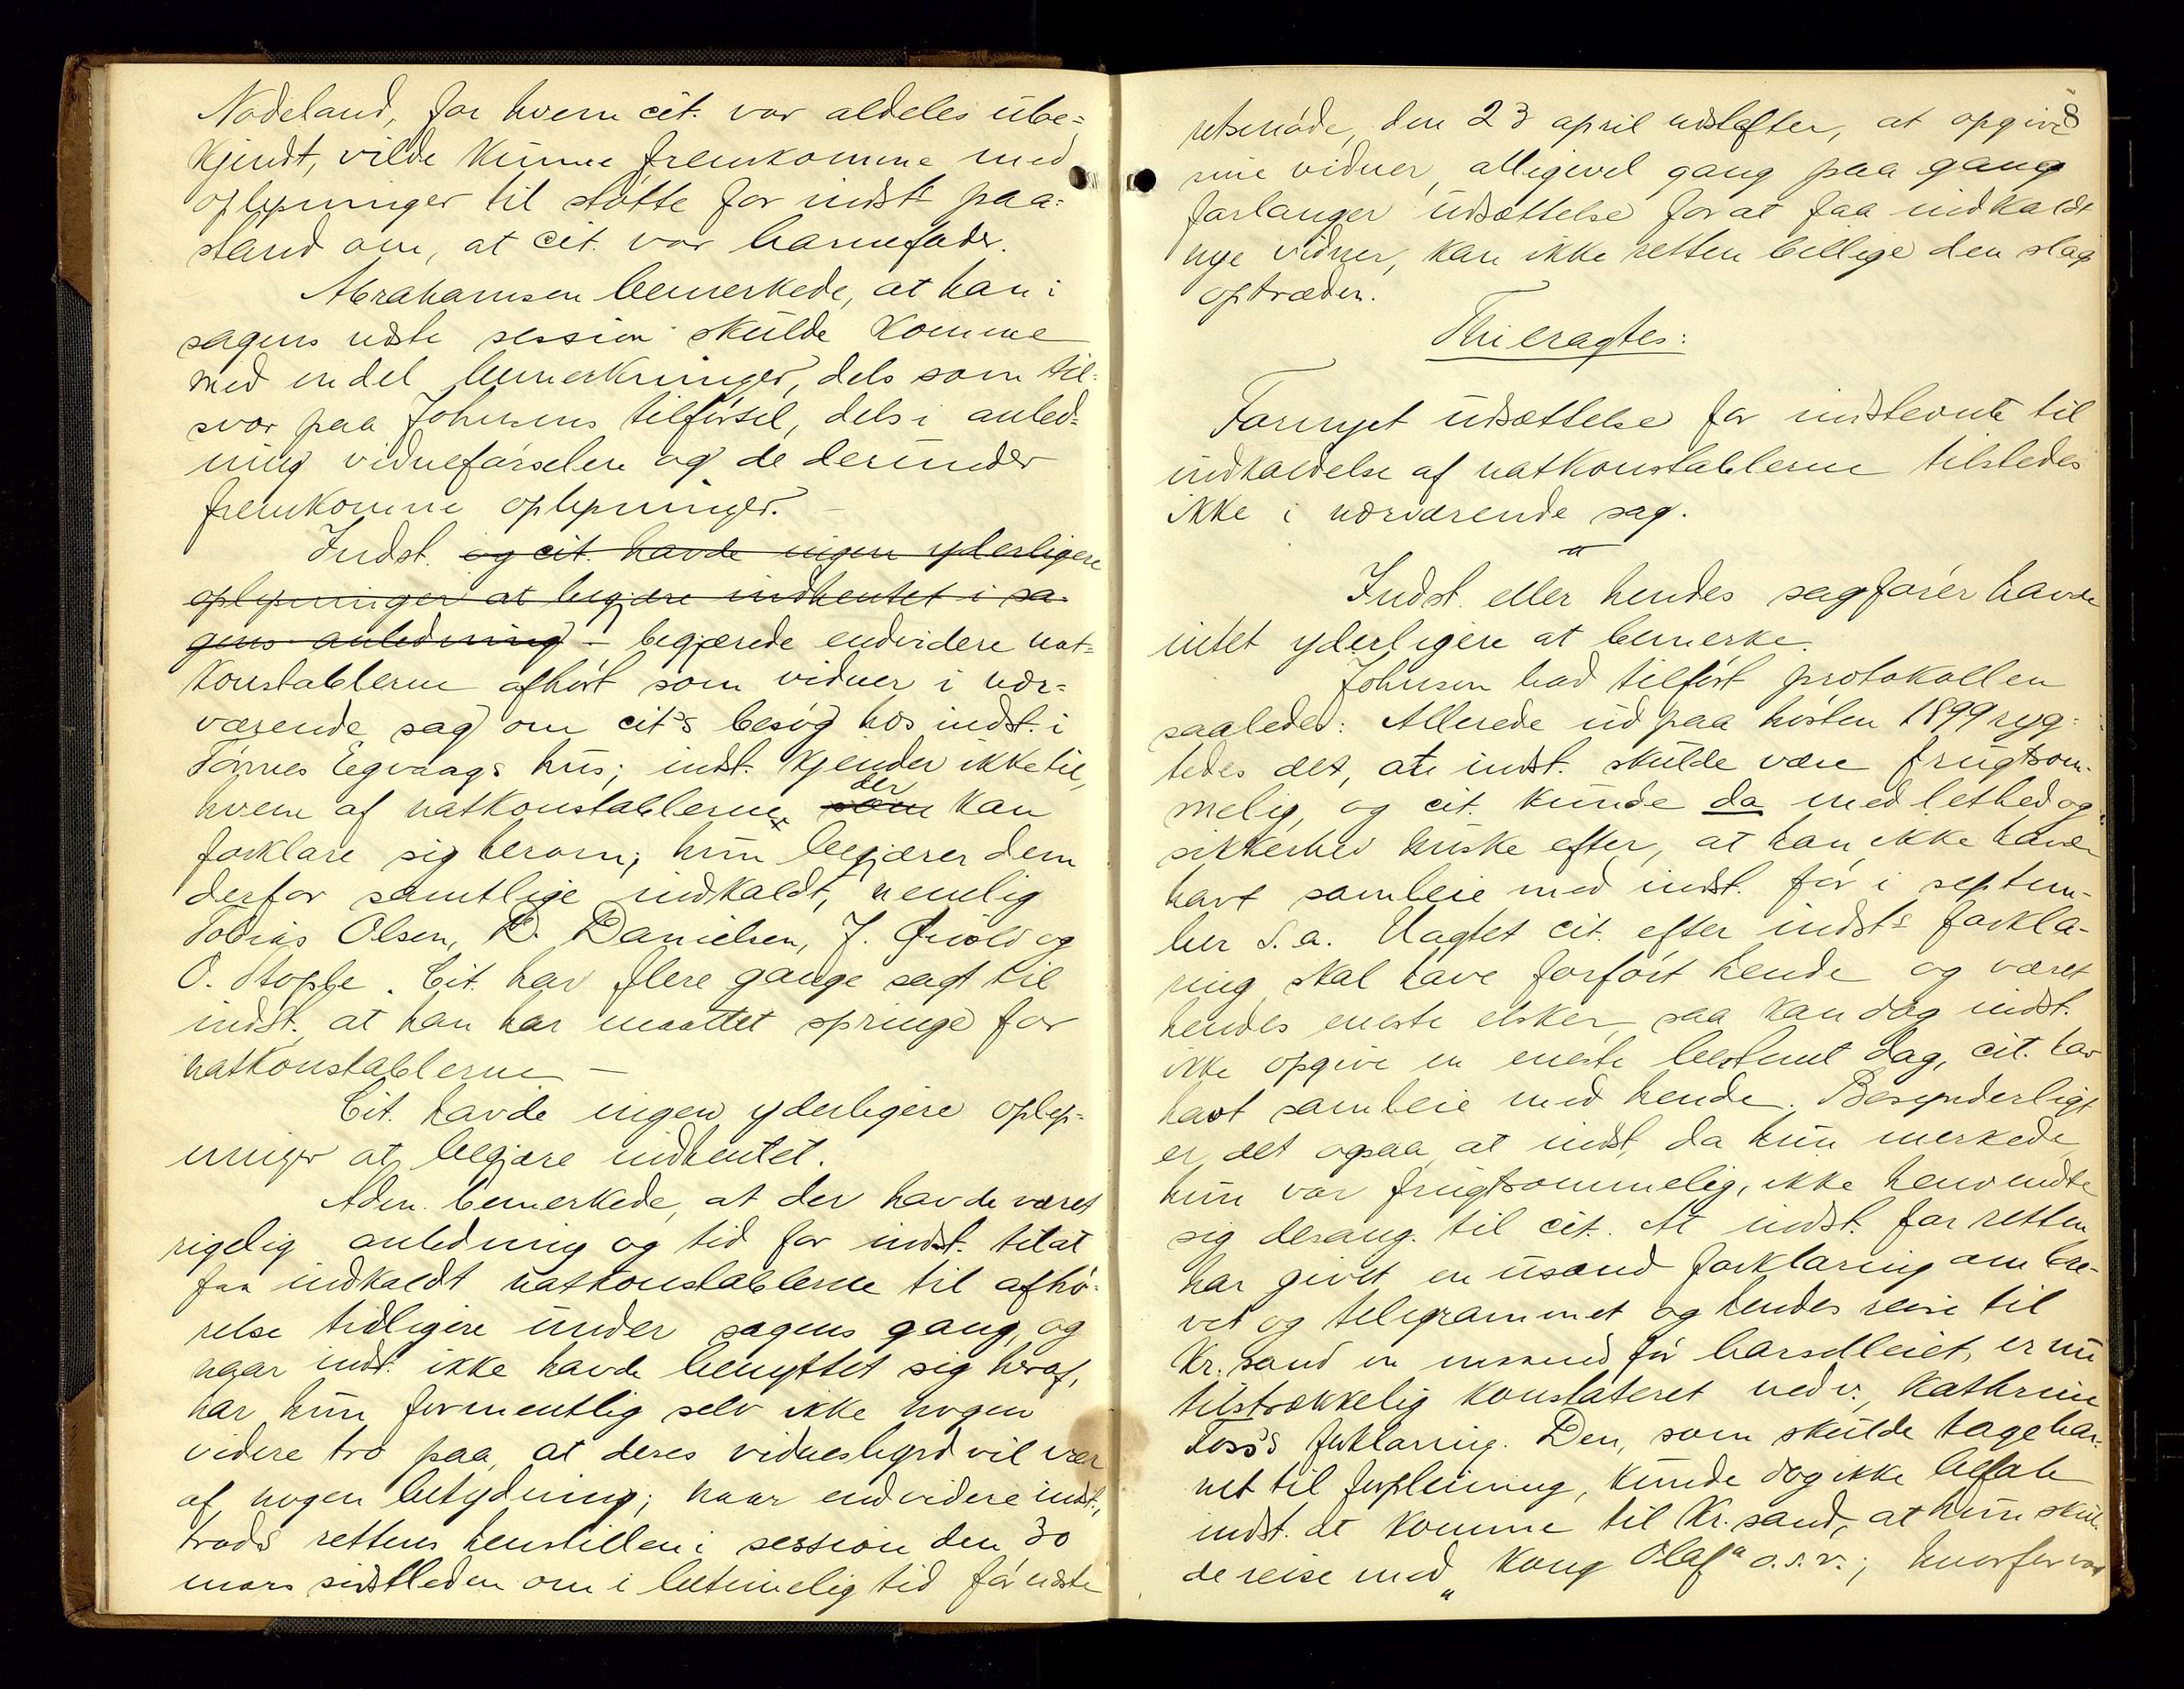 Nodeland, for hvem cit. var aldeles ube=
kjendt, vilde kunne fremkomme med
oplysninger til støtte for indsts paa=
stand om, at cit. var barnefader.
Abrahamsen bemerkede, at han i
sagens næste session skulde komme
med endel bemerkninger, dels som til=
svar paa Johnsens tilførsel, dels i anled=
ning vidneførselen og de derunder
fremkomne oplysninger. –
Indst. og cit. havde ingen yderligere
oplysninger at begjære indhentet i sa-
gens anledning – begjærede endvidere nat=
konstablerne afhørt som vidner i nær=
værende sag om cit's besøg hos indst. i
Tønnes Egvaags hus; indst. kjender ikke til,
der
hvem af natkonstablerne som kan
forklare sig herom; hun begjærer dem
derfor samtlige indkaldt, nemlig
Tobias Olsen, D. Danielsen, J. Qviold og
O. Stople. Cit. har flere gange sagt til
indst. at han har maattet springe for
natkonstablerne –
Cit. havde ingen yderligere oplys=
ninger at begjære indhentet.
Adm. bemerkede, at der havde været
rigelig anledning og tid for indst. til at
faa indkaldt natkonstablerne til afhø-
relse tidligere under sagens gang, og
naar indst. ikke havde benyttet sig heraf,
har hun formentlig selv ikke nogen
videre tro paa, at deres vidnesbyrd vil være
af nogen betydning; naar endvidere indst.,
trods rettens henstillen i session den 30
mars sidstleden om i betimelig tid før næste
8
retsmøde, den 23 april næstefter, at opgive
sine vidner, alligevel gang paa gang
forlanger udsættelse for at faa indkaldt
nye vidner, kan ikke retten billige den slags
optræden.
Thi eragtes:
Fornyet udsættelse for indstevnte til
indkaldelse af natkonstablerne tilstedes
ikke i nærværende sag.
"
Indst. eller hendes sagfører havde
intet yderligere at bemerke.
Johnsen bad tilført protokollen
saaledes: Allerede ud paa høsten 1899 ryg=
tedes det, at indst. skulde være frugtsom-
melig, og cit. kunde da med lethed og
sikkerhed huske efter, at han ikke havde
havt samleie med indst. før i septem-
ber s.a. Uagtet cit. efter indsts forkla-
ring skal have forført hende og været
hendes eneste elsker, saa kan dog indst.
ikke opgive en eneste bestemt dag, cit. har
havt samleie med hende. Besynderligt
er det ogsaa, at indst, da hun merkede
hun var frugtsommelig, ikke henvendte
sig desang. til cit. At indst. for retten
har givet en usand forklaring om bre-
vet og telegrammet og hendes reise til
Kr.sand en maaned før barselleiet, er nu
tilstrækkelig konstateret ved v., Kathrine
Foss's forklaring. Den, som skulde tage bar-
net til forpleining, kunde dog ikke befale
indst. at komme til Kr.sand, at hun skul-
de reise med „Kong Olaf" o.s.v.; hvorfor var